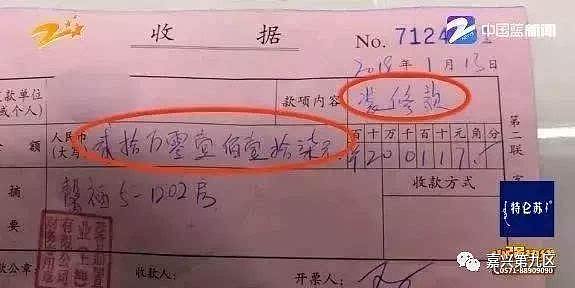 中国蓝新闻
收 据
No. 7124
2018年1月13日
款单位
或个人)
款项内容
装修款
第二联
金额
人民币
(大写)
贰拾万零壹佰壹拾柒元
百十万千百十元角分
20 0117.
收款方式
摘要
5-1202房
有限公司
款公章:
收款人:
开票人:
特仑苏
0571-88909090
嘉兴第九区